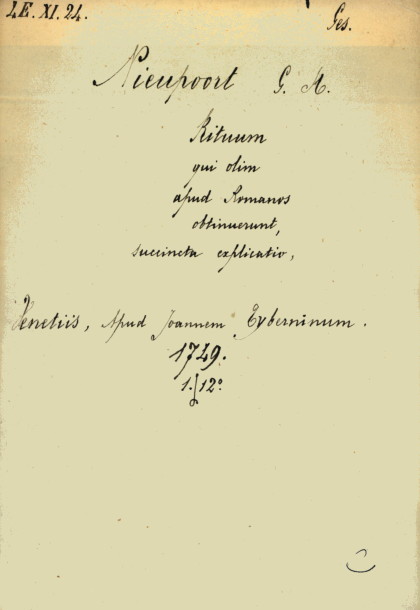 4E. XI. 24.
Ges.
Nieupoort G. H.
Rituum
qui olim
apud Romanos
obtinuerunt,
succincta explicatio,
Venetiis, Apud Joannem Tyberninum.
1749.
1. 12°